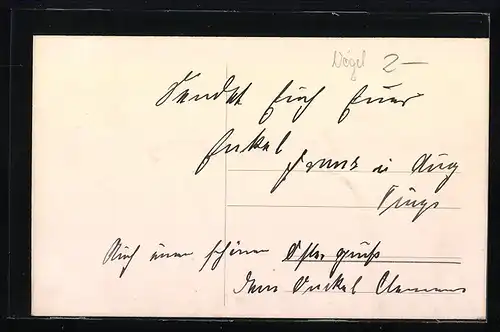 Vögel 2—
Sendet Euch Euer
Enkel
Hans u Aug
Auch einen schönen Ostergruß
Dein Onkel Clemens